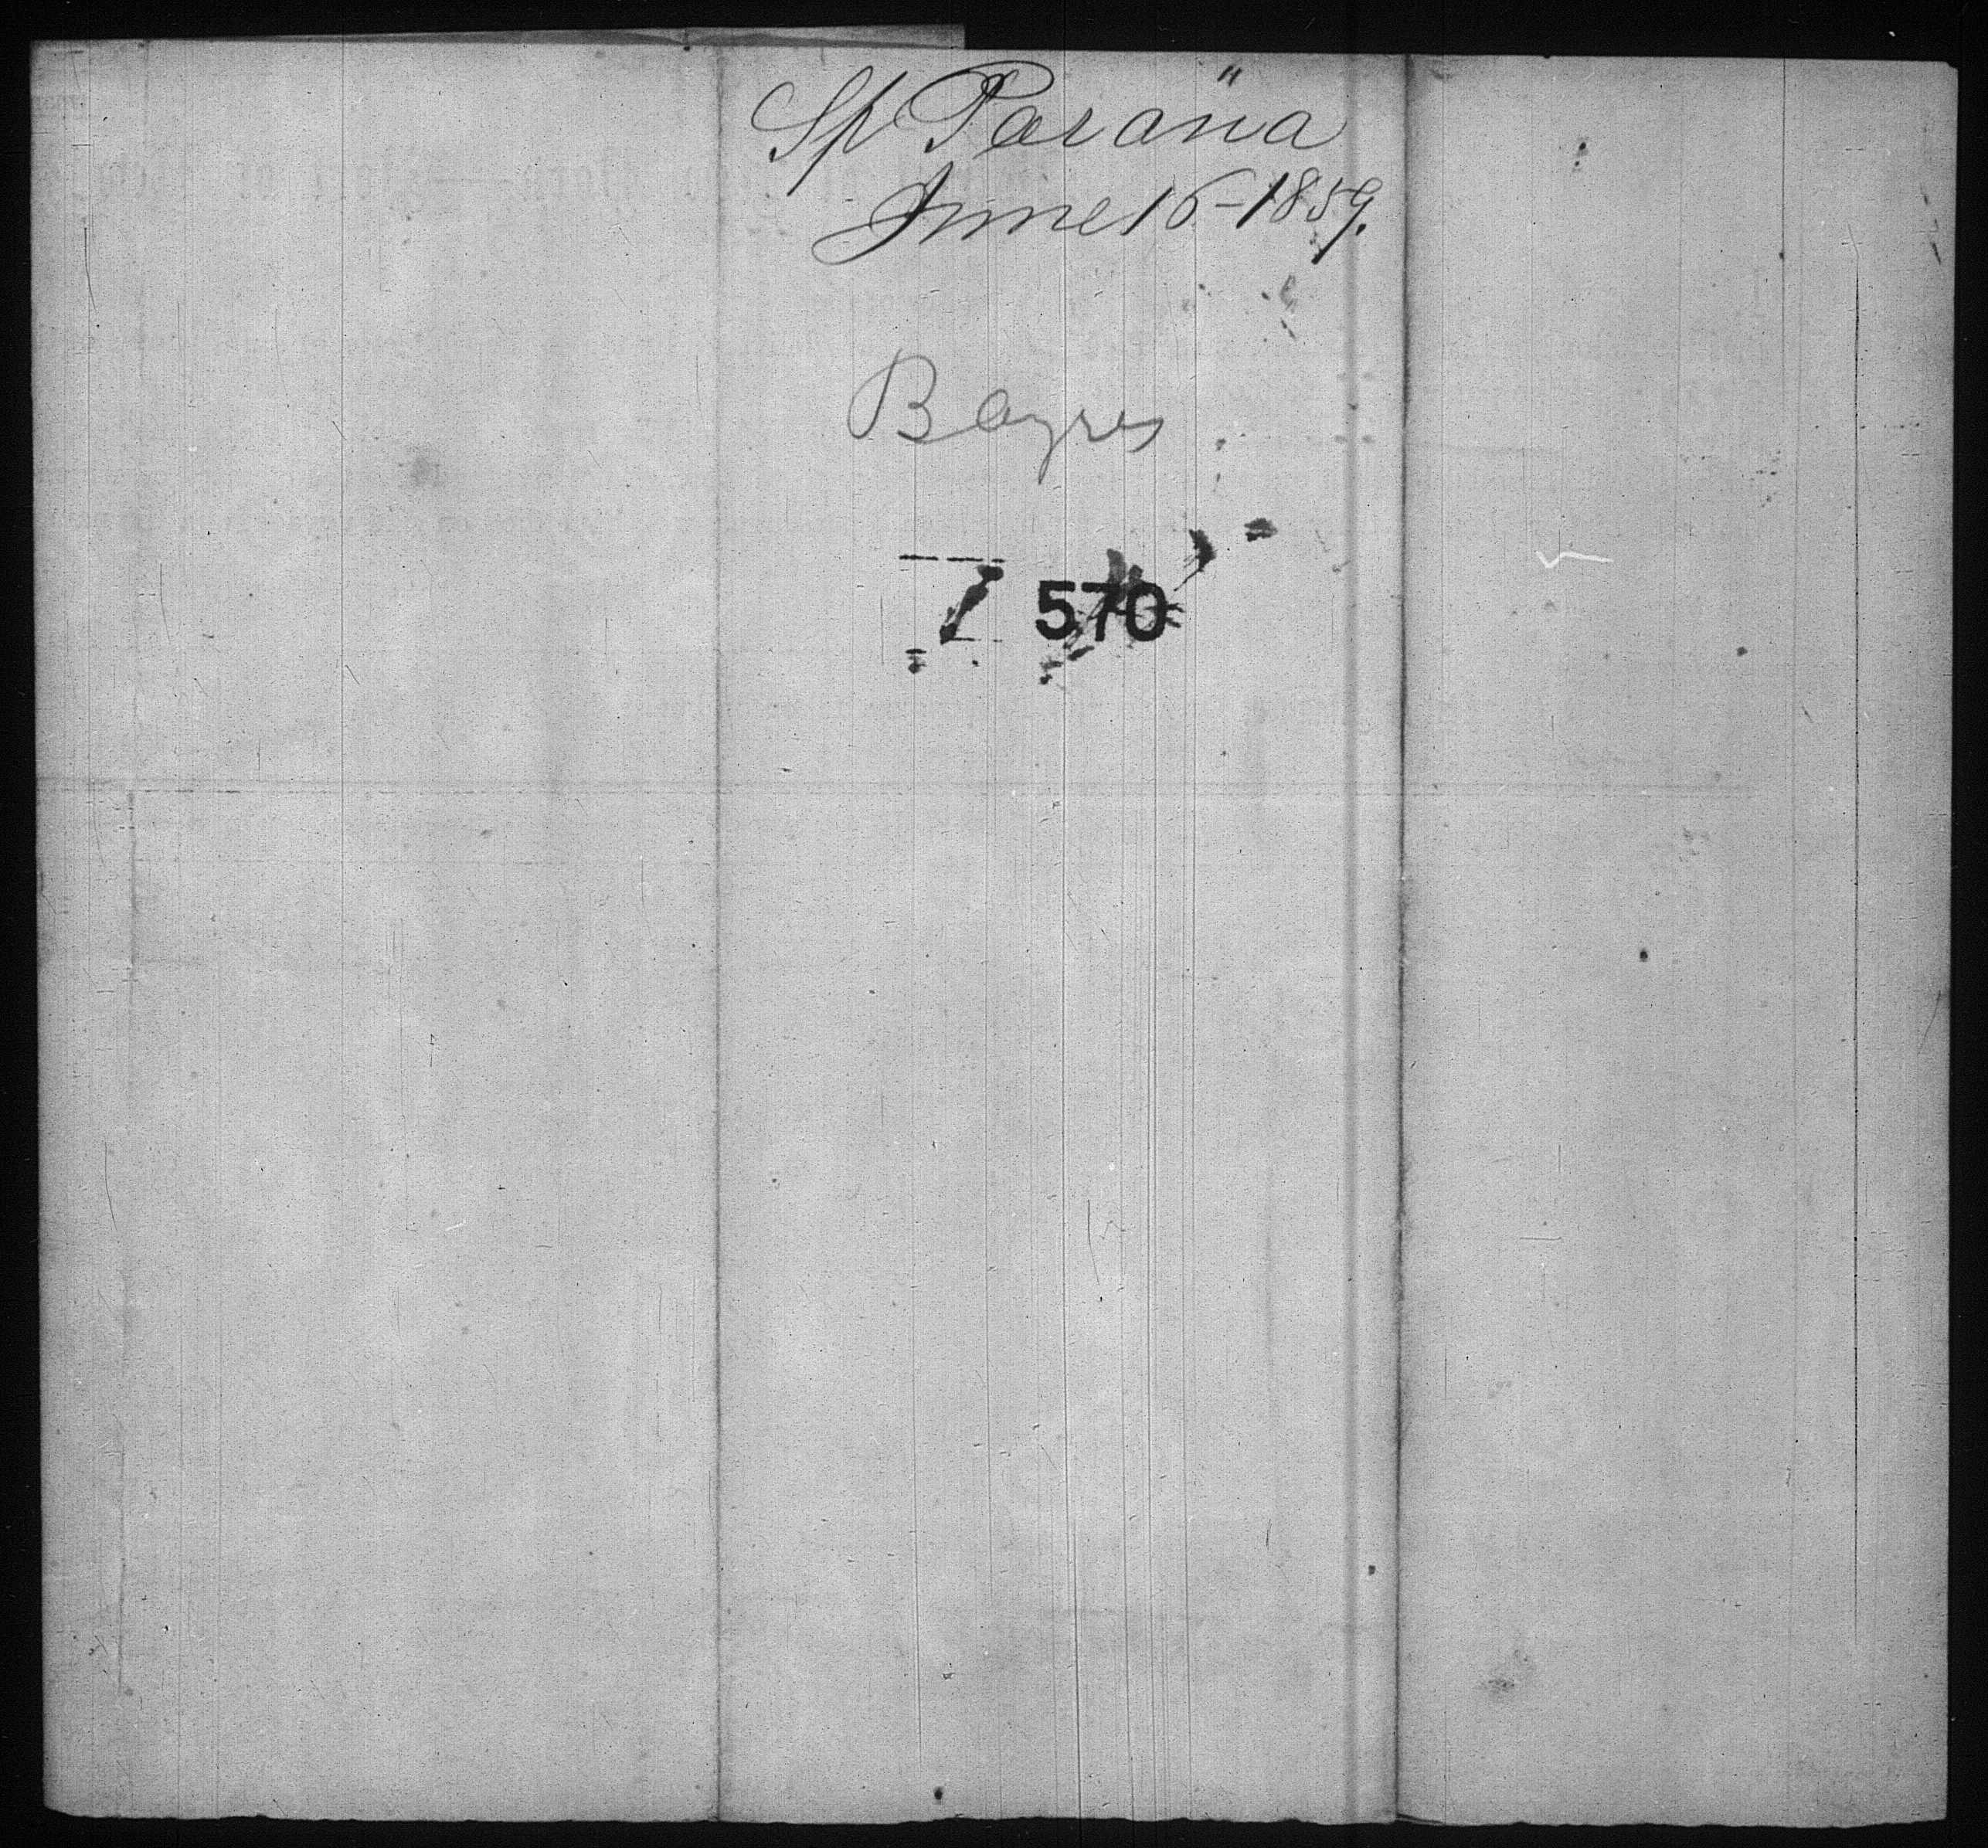 Sp Parana"
June 16-1859.
Bayres
570